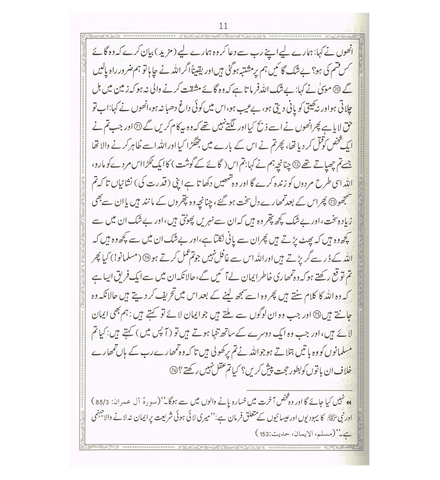 11
انھوں نے کہا: ہمارے لیے اپنے رب سے دعا کر وہ ہمارے لیے (مزید) بیان کرے کہ وہ گائے
کس قسم کی ہو؟ بے شک گائیں ہم پر مشتبہ ہوگئی ہیں اور یقیناً اگر اللہ نے چاہا تو ہم ضرور راہ پالیں گے
⑦⓪ موسیٰ نے کہا: بے شک اللہ فرماتا ہے کہ وہ گائے مشقت کرنے والی نہ ہو کہ زمین میں ہل
چلاتی ہو اور نہ کھیتی کو پانی دیتی ہو، بے عیب ہو، اس میں کوئی داغ دھبا نہ ہو، انھوں نے کہا: اب تو
حق لایا ہے پھر انھوں نے اسے ذبح کیا اور لگتے نہیں تھے کہ وہ یہ کام کریں گے ⑦① اور جب تم نے
ایک شخص کو قتل کر دیا تھا، پھر تم نے اس کے بارے میں جھگڑا کیا اور اللہ اسے ظاہر کرنے والا تھا
جسے تم چھپاتے تھے ⑦② چنانچہ ہم نے کہا: تم اس (گائے کے گوشت) کا ایک ٹکڑا اس مردے کو مارو،
اللہ اسی طرح مردوں کو زندہ کرے گا اور وہ تمھیں دکھاتا ہے اپنی (قدرت کی) نشانیاں تاکہ تم
سمجھو ⑦③ پھر اس کے بعد تمھارے دل سخت ہو گئے، چنانچہ وہ پتھروں کے مانند ہیں یا ان سے بھی
زیادہ سخت، اور بے شک کچھ پتھر وہ ہیں کہ ان سے نہریں پھوٹتی ہیں، اور بے شک ان میں سے
کچھ وہ ہیں کہ پھٹ پڑتے ہیں پھر ان سے پانی نکلتا ہے، اور بے شک ان میں سے کچھ وہ ہیں کہ
اللہ کے ڈر سے گر پڑتے ہیں اور اللہ اس سے غافل نہیں جو تم عمل کرتے ہو ⑦④ (مسلمانو!) کیا پھر
تم توقع رکھتے ہو کہ وہ تمھاری خاطر ایمان لے آئیں گے، حالانکہ ان میں سے ایک فریق ایسا ہے
کہ وہ اللہ کا کلام سنتے ہیں پھر وہ اسے سمجھ لینے کے بعد اس میں تحریف کر دیتے ہیں حالانکہ وہ
جانتے ہیں ⑦⑤ اور جب وہ ان لوگوں سے ملتے ہیں جو ایمان لائے تو کہتے ہیں: ہم بھی ایمان
لائے ہیں، اور جب وہ ایک دوسرے کے ساتھ تنہا ہوتے ہیں تو (آپس میں) کہتے ہیں: کیا تم
مسلمانوں کو وہ باتیں بتلاتے ہو جو اللہ نے تم پر کھولی ہیں تاکہ وہ تمھارے رب کے ہاں تمھارے
خلاف ان باتوں کو بطور حجت پیش کریں؟ کیا تم عقل نہیں رکھتے؟ ⑦⑥
نہیں کیا جائے گا اور وہ شخص آخرت میں خسارہ پانے والوں میں سے ہوگا۔“ (سورۂ آل عمران: 85/3)
اور نبی ﷺ کا یہودیوں اور عیسائیوں کے متعلق فرمان ہے: ”میری لائی ہوئی شریعت پر ایمان نہ لانے والا جہنمی
ہے۔“ (مسلم، الایمان، حدیث: 153)